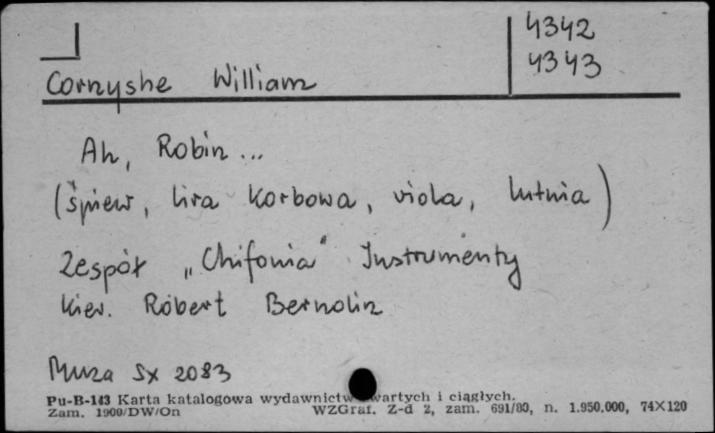 4342
4343
Cornyshe William
Ah, Robin...
(śpiew, lira korbowa, viola, lutnia)
Zespół „Chifonia" Instrumenty
kier. Robert Bernolin
Muza Sx 2083
Pu-B-143 Karta katalogowa wydawnictw zwartych i ciągłych.
Zam. 1900/DW/On WZGraf. Z-d 2, zam. 691/80, n. 1.950.000, 74X120